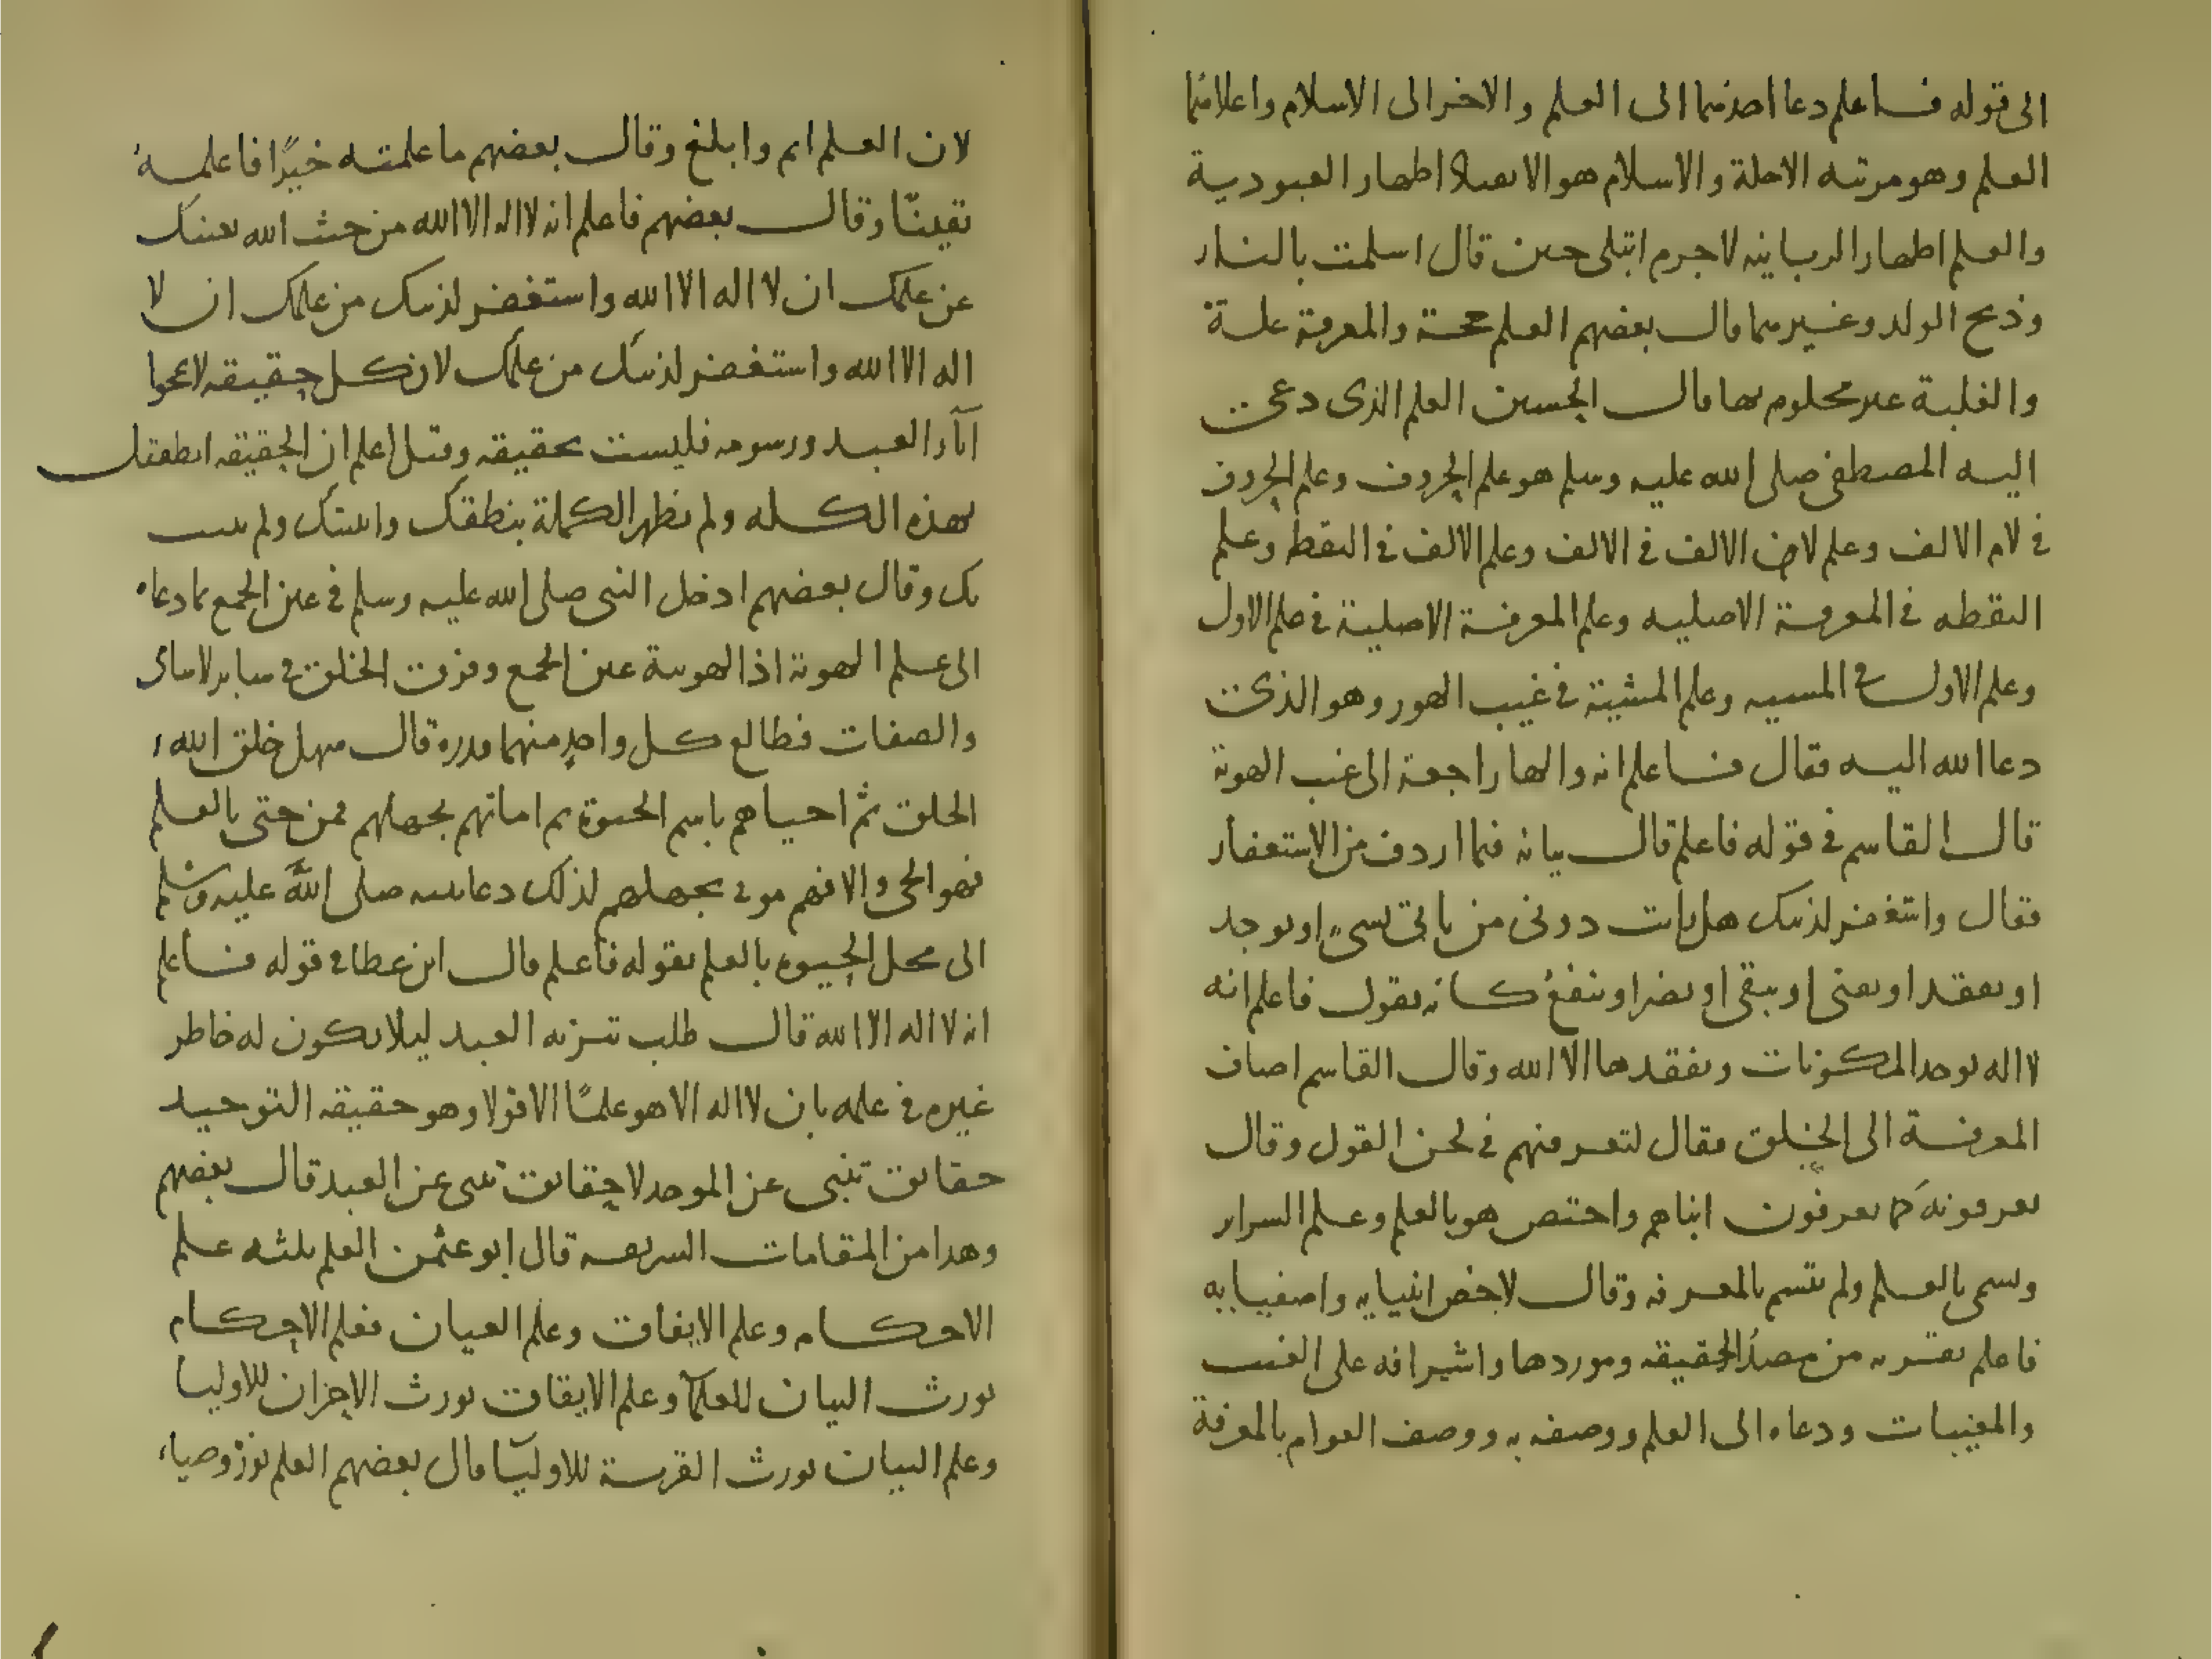 الى قوله فاعلم دعا احدهما الى العلم والاخر الى الاسلام واعلاهما
العلم وهو مرتبه الاجلة والاسلام هو الانقياد اظهار العبودية
والعلم اظهار الربانيه لاجرم ابتلى حين قال اسلمت بالنار
وذبح الولد وغيرهما قال بعضهم العلم حجة والمعرفة غلبة
والغلبة غير محكوم بها قال الحسين العلم الذى دعى
اليه المصطفى صلى الله عليه وسلم هو علم الحروف وعلم الحروف
فى لام الالف وعلم لام الالف فى الالف وعلم الالف فى النقطة وعلم
النقطه فى المعرفة الاصليه وعلم المعرفة الاصلية فى علم الاول
وعلم الاول فى المشيه وعلم المشية فى غيب الهو وهو الذى
دعا الله اليه فقال فاعلم انه والها راجعة الى غيب الهوية
قال القاسم فى قوله فاعلم قال بيانه فيما اردف من الاستغفار
فقال واستغفر لذنبك هل يات دونى من ياتى بشىء او يوجد
او يفقد او يفنى او يبقى او يضر او ينفع كانه يقول فاعلم انه
لا اله يوجد المكونات ويفقدها الا الله وقال القاسم اضاف
المعرفة الى الخلق فقال لتعرفنهم فى لحن القول وقال
يعرفونه كما يعرفون ابناهم واختص هو بالعلم وعلم السرار
وسمى بالعلم ولم يتسم بالمعرفه وقال لاخص انبيايه واصفيايه
فاعلم بقربه من مصدر الحقيقه وموردها واشرافه على الغيب
والمغيبات ودعاه الى العلم ووصفه به ووصف العوام بالمعرفة
لان العلم اتم وابلغ وقال بعضهم ما علمته خبرًا فاعلمه
يقينًا وقال بعضهم فاعلم انه لا اله الا الله من حيث الله يغنيك
عن علمك ان لا اله الا الله واستغفر لذنبك من علمك ان لا
اله الا الله واستغفر لذنبك من علمك لان كل حقيقه لا تمحوا
آثار العبد ورسومه فليست بحقيقه وقيل اعلم ان الحقيقه انطقتك
بهذه الكلمه ولم تظهر الكلمة بنطقك واثبتك ولم يثبت
بك وقال بعضهم ادخل النبى صلى الله عليه وسلم فى عين الجمع بما دعاه
الى علم الهوية اذ الهوية عين الجمع وفرق الخلق فى ساير الاسامى
والصفات فطالع كل واحد منهما قدره قال سهل خلق الله
الخلق ثم احياهم باسم الحيوة ثم اماتهم بجهلهم فمن حتى بالعلم
فهو الحى والا فهم موتى بجهلهم لذلك دعا نبيه صلى الله عليه وسلم
الى محل الحيوة بالعلم بقوله فاعلم قال ابن عطا فى قوله فاعلم
انه لا اله الا الله قال طلب تنزيه العبد ليلا يكون له خاطر
غيره فى علمه بان لا اله الا هو علمًا لا قولا وهو حقيقه التوحيد
حقايق تنبى عن الموحد لا حقايق تنبى عن العبد قال بعضهم
وهذا من المقامات الشريفه قال ابو عثمن العلم ثلثه علم
الاحكام وعلم الايقان وعلم العيان فعلم الاحكام
يورث البيان للعلمآ وعلم الايقان يورث الاحزان للاوليا
وعلم البيان يورث القربة للاوليآ قال بعضهم العلم نور وضياء